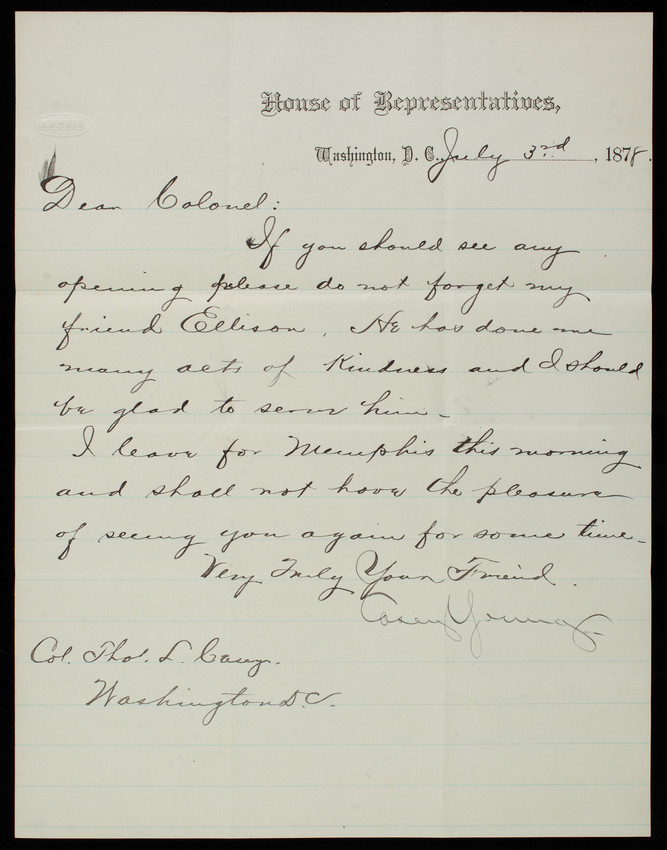 House of Representatives,
Washington, D. C., July 3rd, 1878.
Dear Colonel:
If you should see any
opening please do not forget my
friend Ellison. He has done me
many acts of Kindness and I should
be glad to serve him –
I leave for Memphis this morning
and shall not have the pleasure
of seeing you again for some time –
Very Truly Your Friend.
Casey Young
Col. Thos. L. Casey.
Washington D.C.